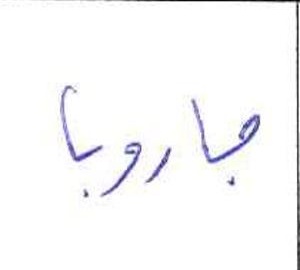 جاروبا